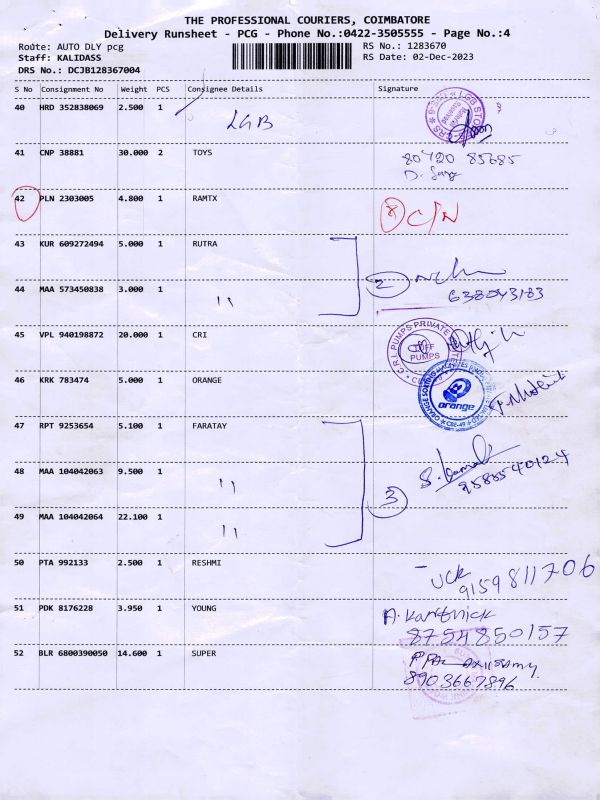 THE PROFESSIONAL COURIERS, COIMBATORE
Delivery Runsheet - PCG - Phone No.:0422-3505555 - Page No.:4
Route: AUTO DLY pcg RS No.: 1283670
Staff: KALIDASS RS Date: 02-Dec-2023
DRS No.: DCJB128367004
S No Consignment No Weight PCS Consignee Details Signature
40 HRD 352838069 2.500 1 LGB
41 CNP 38881 30.000 2 TOYS 80720 85685
42 PLN 2303005 4.800 1 RAMTX C/N
43 KUR 609272494 5.000 1 RUTRA
44 MAA 573450838 3.000 1 " 2
45 VPL 940198872 20.000 1 CRI C.R.I. PUMPS PRIVATE PUMPS
46 KRK 783474 5.000 1 ORANGE orange
47 RPT 9253654 5.100 1 FARATAY
48 MAA 104042063 9.500 1 " 9585540124
49 MAA 104042064 22.100 1 " 3
50 PTA 992133 2.500 1 RESHMI 9159811706
51 PDK 8176228 3.950 1 YOUNG A. Karthick
8754850157
52 BLR 6800390050 14.600 1 SUPER
8903667896